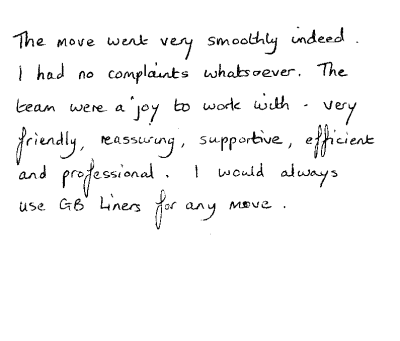 The move went very smoothly indeed.
I had no complaints whatsoever. The
team were a joy to work with - very
friendly, reassuring, supportive, efficient
and professional. I would always
use GB Liners for any move.